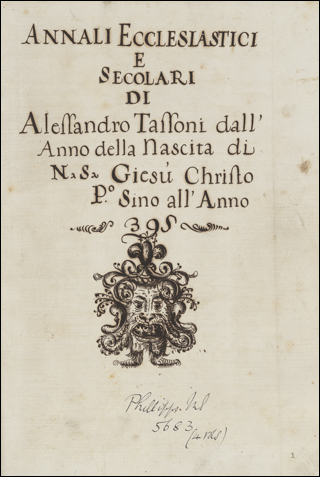 ANNALI ECCLESIASTICI
E
SECOLARI
DI
Alessandro Tassoni dall'
Anno della Nascita di
N.S. Giesù Christo
P.º Sino all'Anno
395
Phillipps
5683
(4 vols)
1